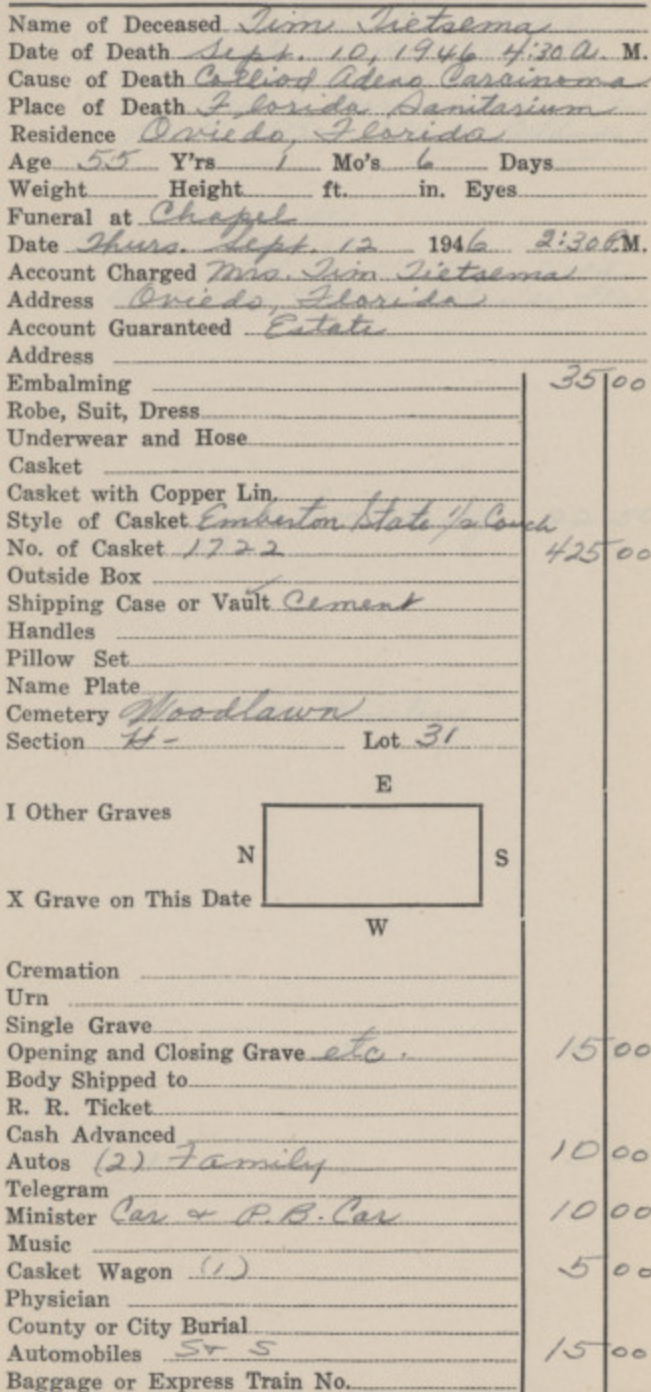 Name of Deceased Tim Tietsema
Date of Death Sept. 10, 1946 4:30 A. M.
Cause of Death Colliod Adeno Carcinoma
Place of Death Florida Sanitarium
Residence Oviedo, Florida
Age 55 Y'rs 1 Mo's 6 Days
Weight Height ft. in. Eyes
Funeral at Chapel
Date Thurs. Sept. 12 1946 2:30 P.M.
Account Charged Mrs. Tim Tietsema
Address Oviedo, Florida
Account Guaranteed Estate
Address
Embalming 35 00
Robe, Suit, Dress
Underwear and Hose
Casket
Casket with Copper Lin.
Style of Casket Emberton State 1/2 Couch
No. of Casket 1722 425 00
Outside Box
Shipping Case or Vault Cement
Handles
Pillow Set
Name Plate
Cemetery Woodlawn
Section H- Lot 31
E
I Other Graves
N S
X Grave on This Date
W
Cremation
Urn
Single Grave
Opening and Closing Grave etc. 15 00
Body Shipped to
R. R. Ticket
Cash Advanced
Autos (2) Family 10 00
Telegram
Minister Car & P.B. Car 10 00
Music
Casket Wagon (1) 5 00
Physician
County or City Burial
Automobiles S & S 15 00
Baggage or Express Train No.